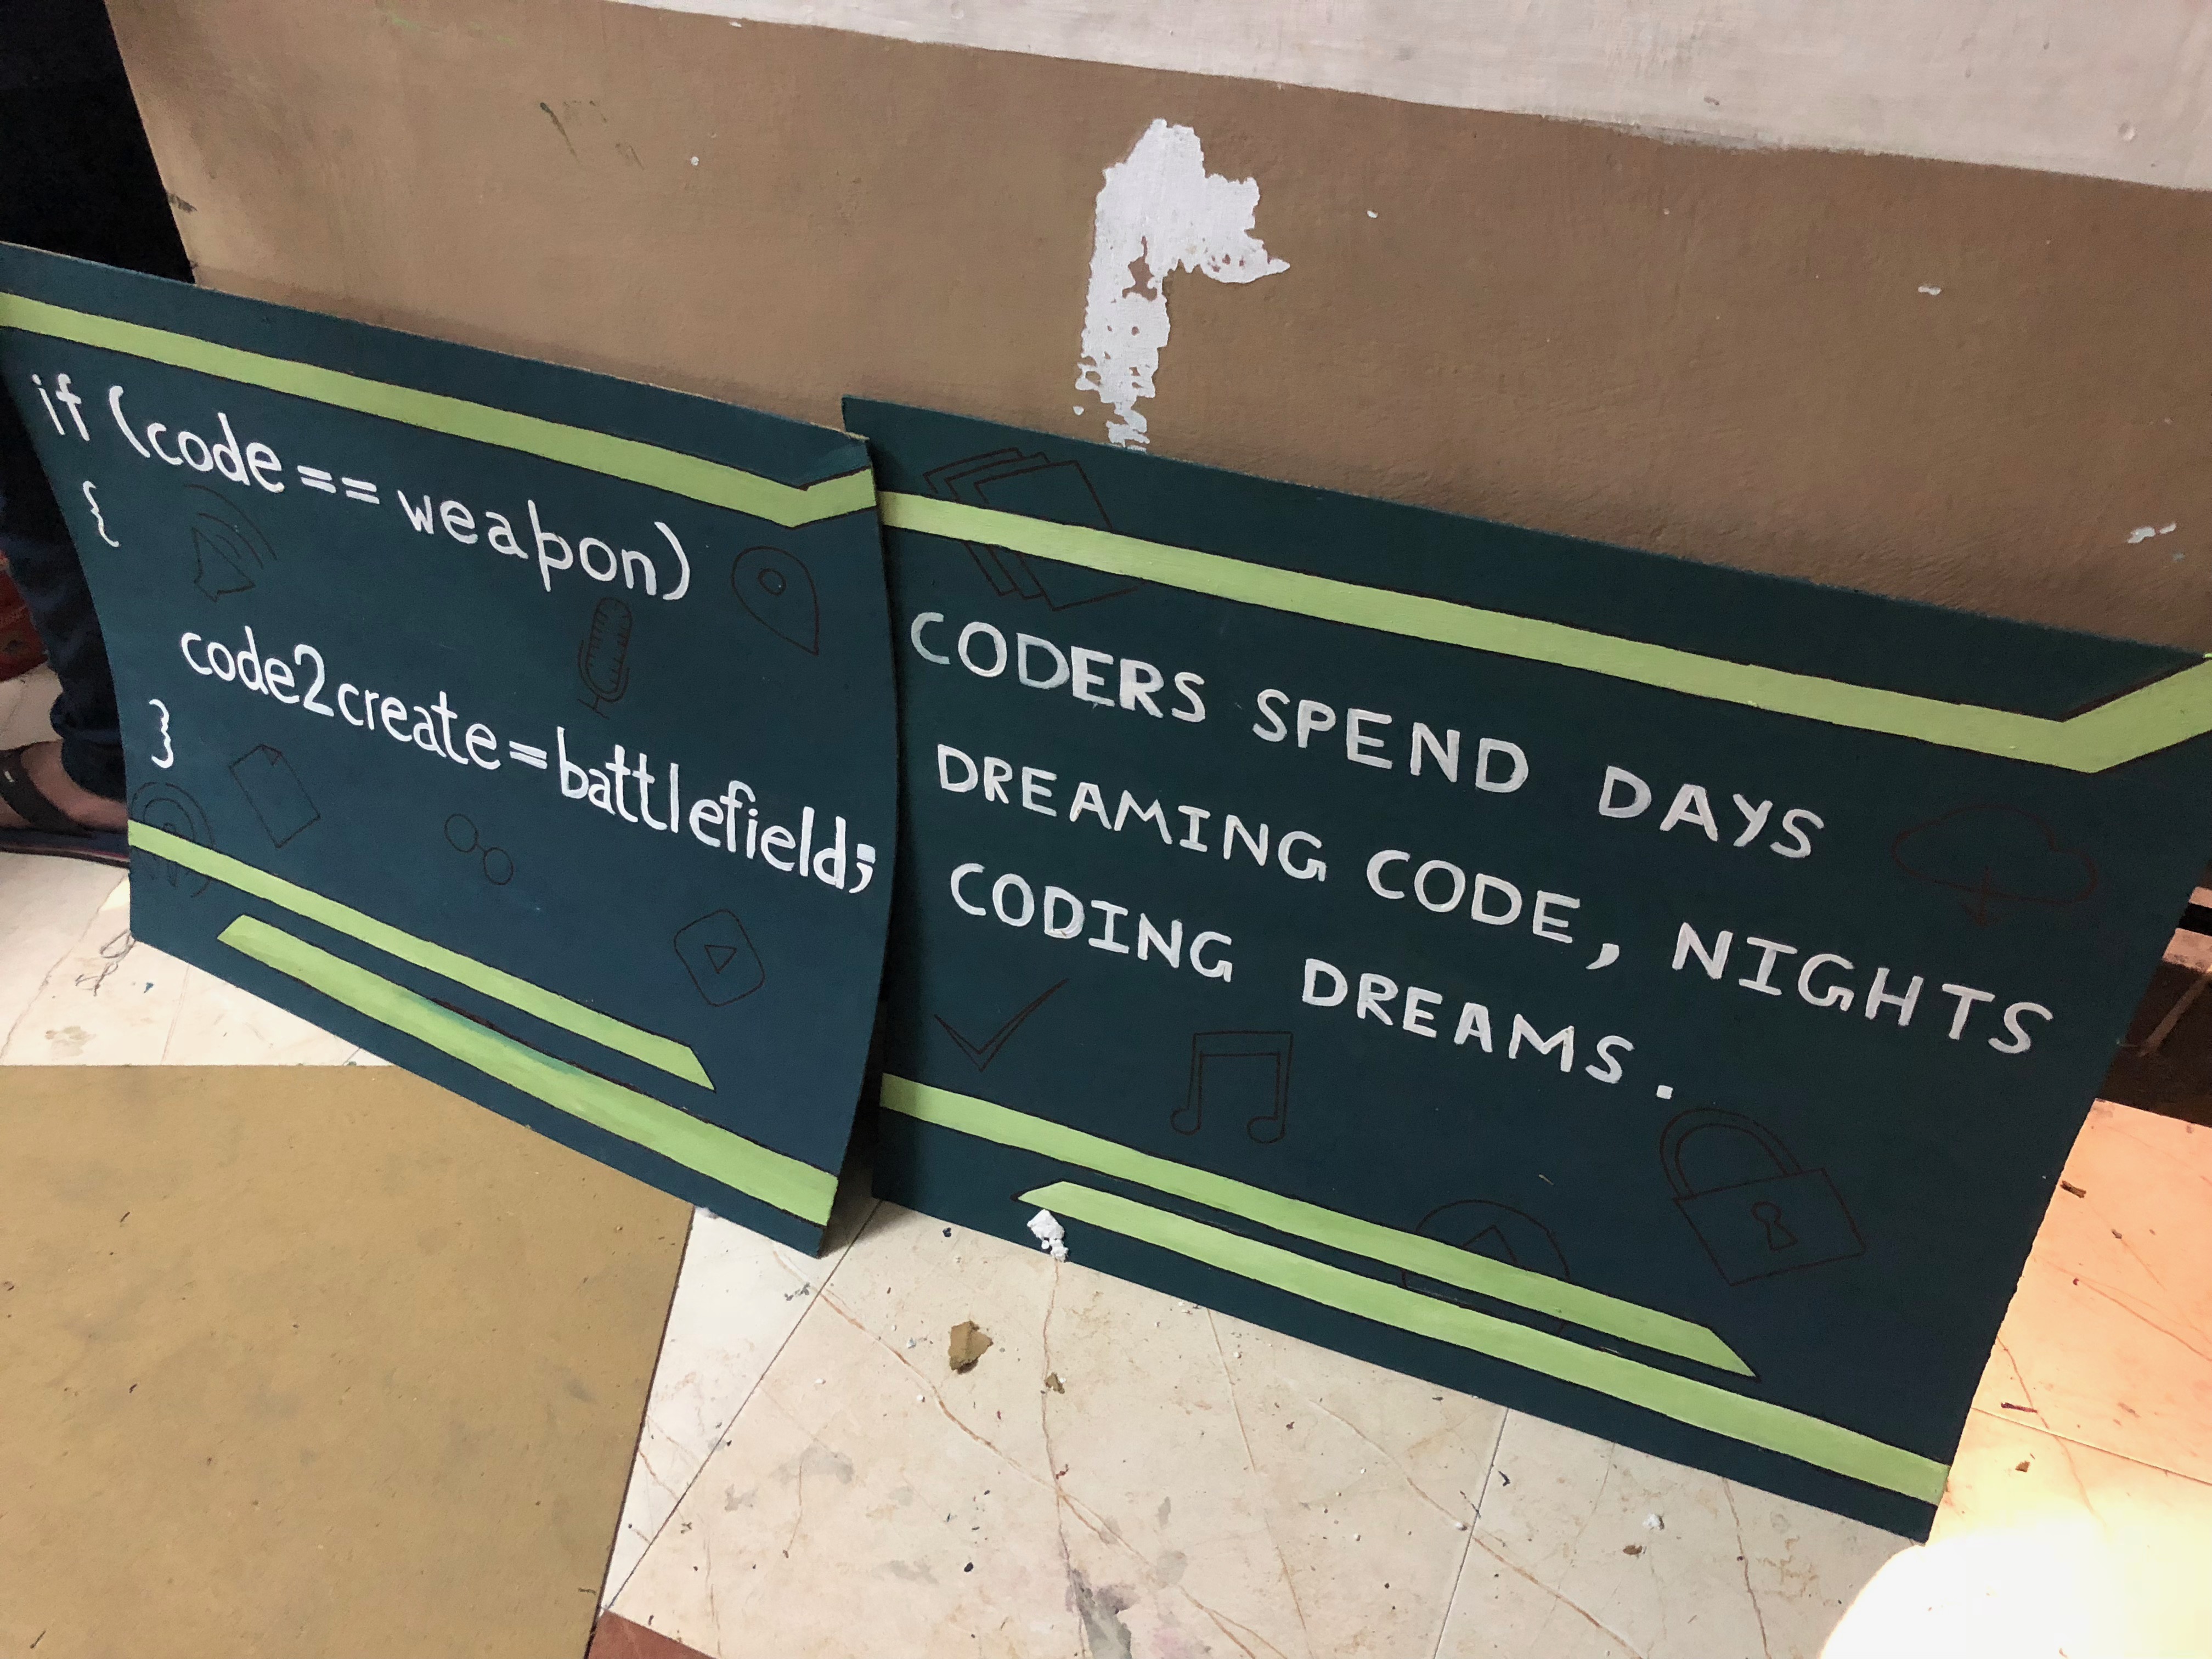 if (code == weapon)
{
code2create = battlefield;
}
CODERS SPEND DAYS
DREAMING CODE, NIGHTS
CODING DREAMS.